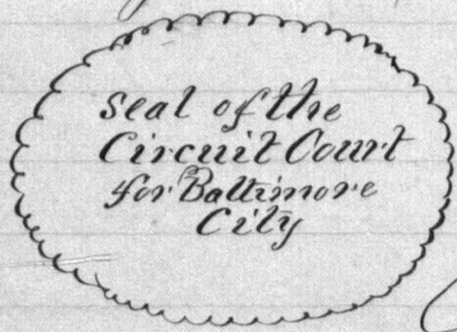 Seal of the
Circuit Court
for Baltimore
City